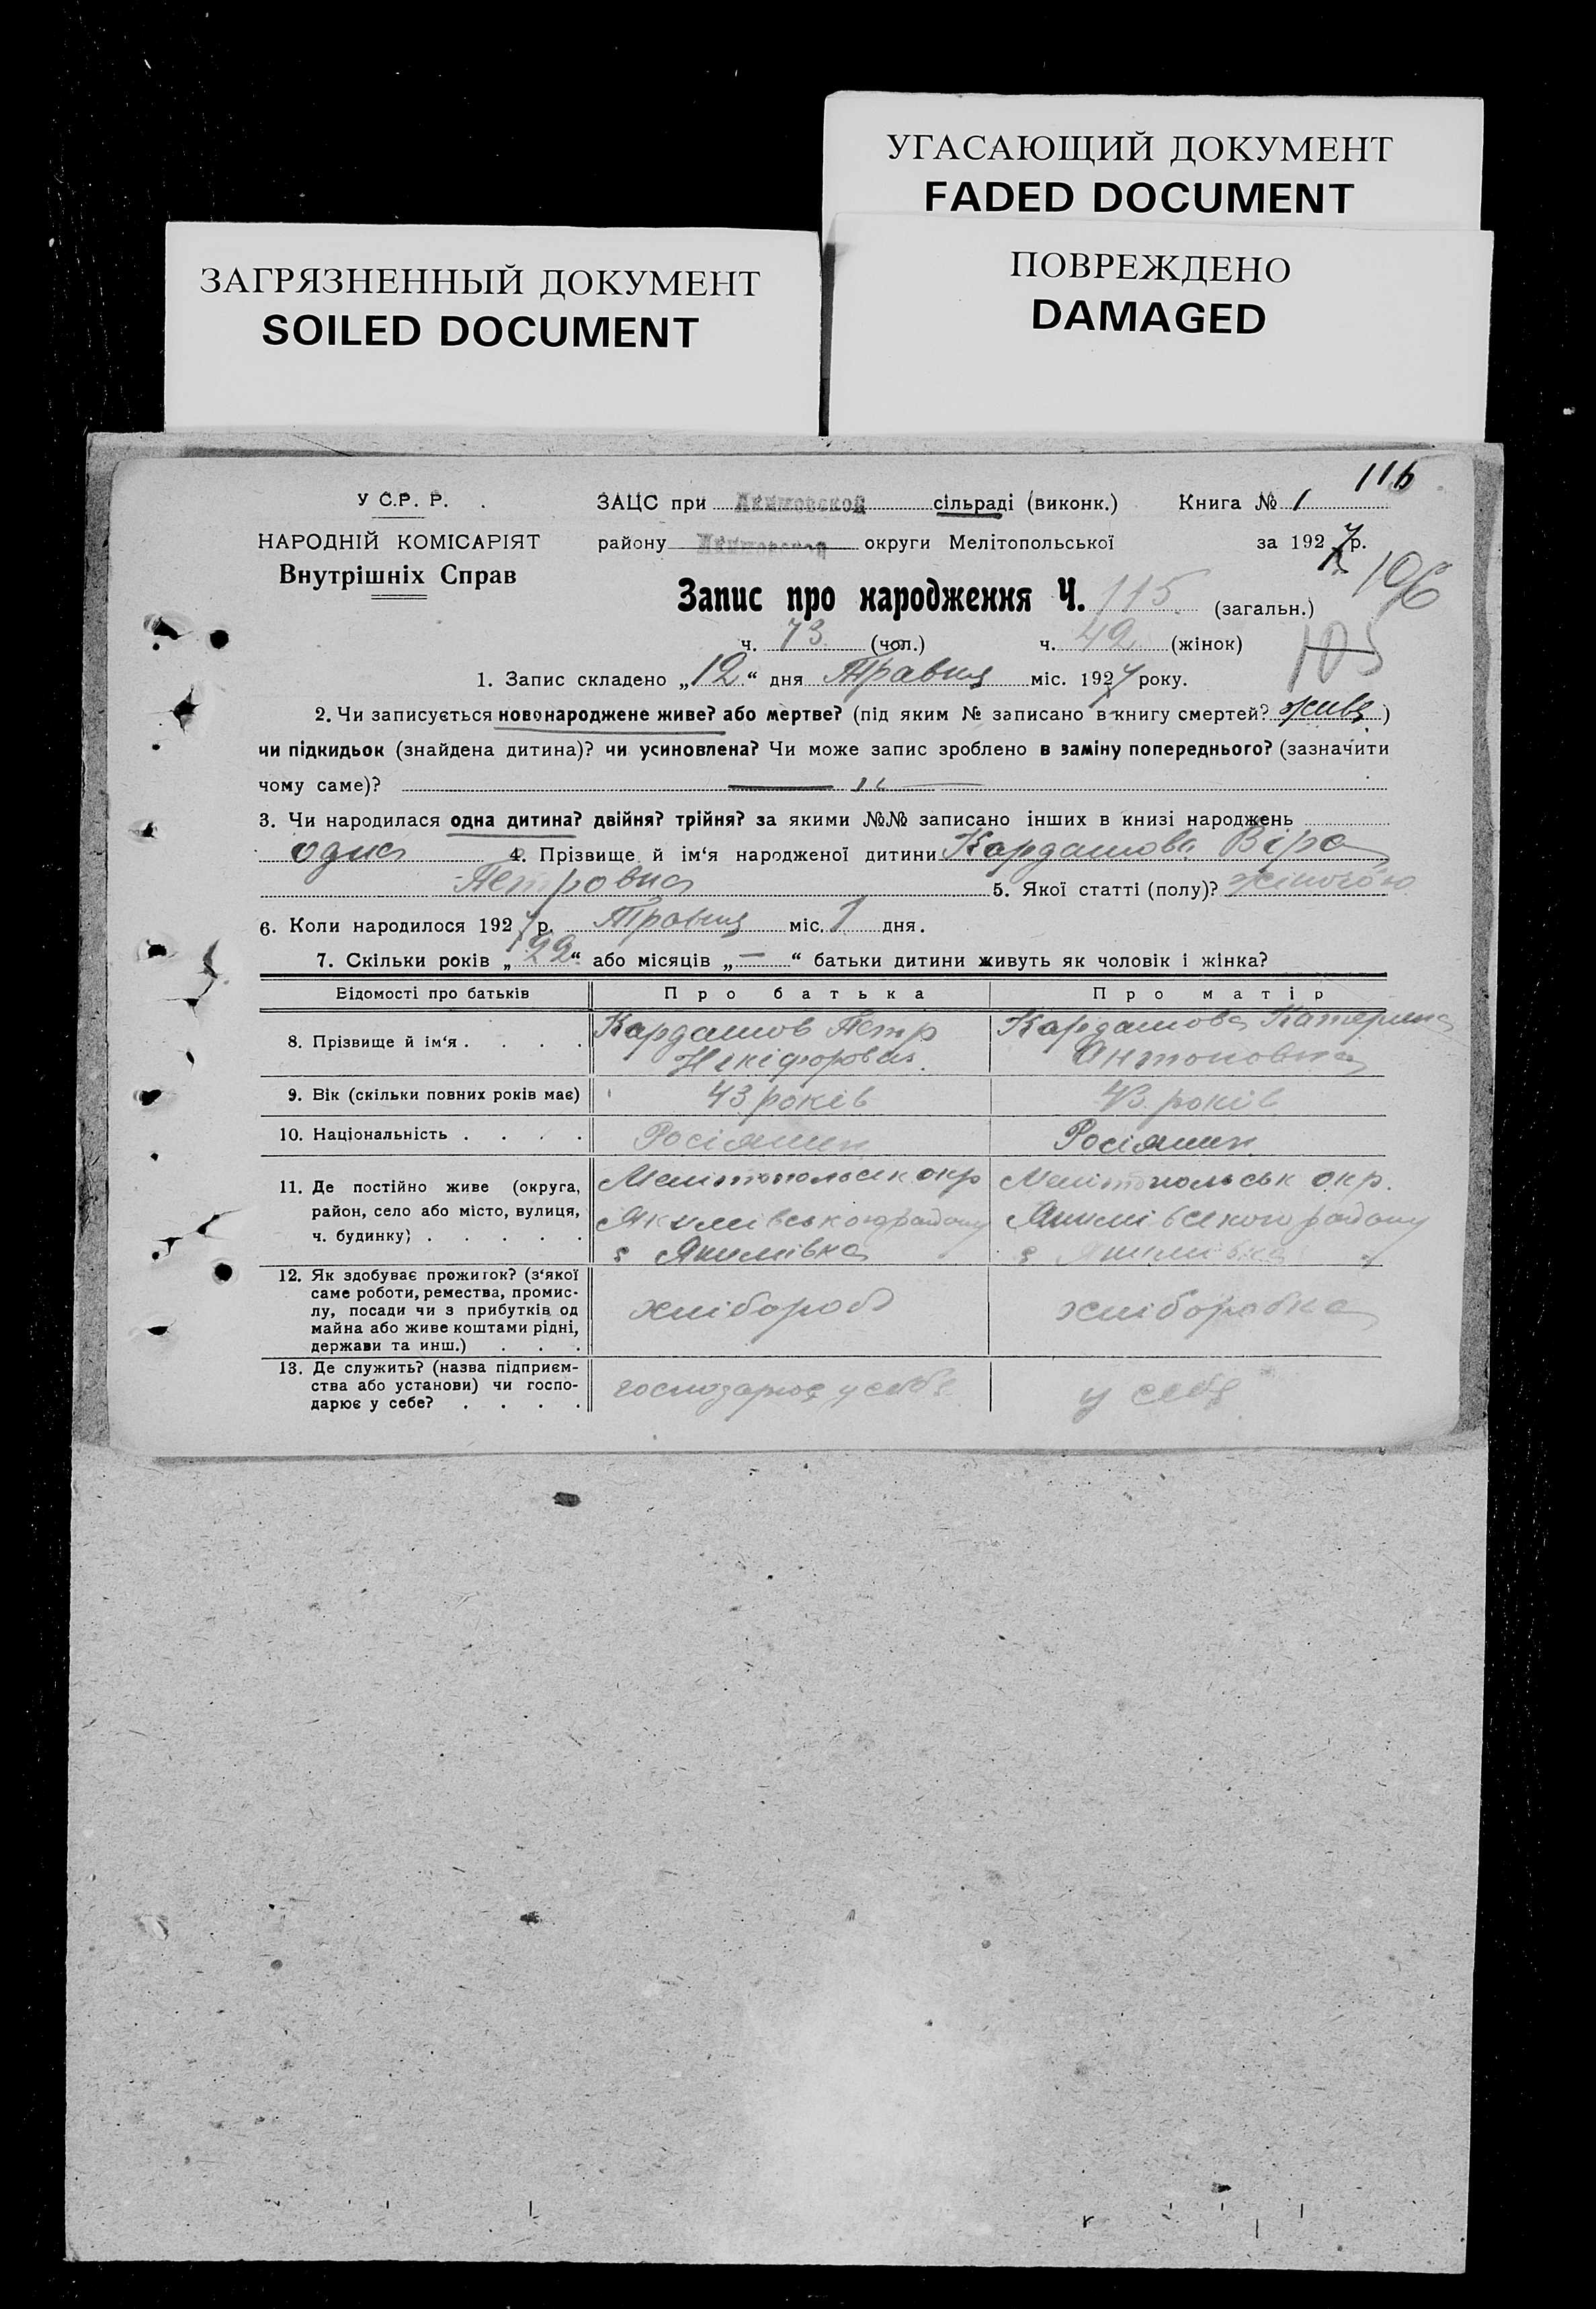 УГАСАЮЩИЙ ДОКУМЕНТ
FADED DOCUMENT
ЗАГРЯЗНЕННЫЙ ДОКУМЕНТ
SOILED DOCUMENT
ПОВРЕЖДЕНО
DAMAGED
116
У С.Р. Р.
ЗАЦС при Якимовской сільраді (виконк.) Книга № 1
НАРОДНІЙ КОМІСАРІЯТ
Внутрішніх Справ
району Якимовской округи Мелітопольської за 1927 р.
106
Запис про народження Ч. 115 (загальн.)
ч. 73 (чол.) ч. 42 (жінок)
105
1. Запис складено „12“ дня Травня міс. 1927 року.
2. Чи записується новонароджене живе? або мертве? (під яким № записано в книгу смертей? живе)
чи підкидьок (знайдена дитина)? чи усиновлена? Чи може запис зроблено в заміну попереднього? (зазначити
чому саме)?
3. Чи народилася одна дитина? двійня? трійня? за якими №№ записано інших в книзі народжень
одна 4. Прізвище й ім‘я народженої дитини Кардашова Віра
Петровна 5. Якої статті (полу)? жіночою
6. Коли народилося 1927 р. Травня міс. 1 дня.
7. Скільки років „22“ або місяців „—“ батьки дитини живуть як чоловік і жінка?
Відомості про батьків Про батька Про матір
8. Прізвище й ім‘я . . . . Кардашов Петр Кардашова Катерина
Нікіфорович Антоновна
9. Вік (скільки повних років має) 43 років 43 років
10. Національність . . . . Росіянин Росіянин
11. Де постійно живе (округа, Мелітопольськ окр Мелітопольськ окр.
район, село або місто, вулиця, Якимівського району Якимівського району
ч. будинку) . . . . . с Якимівка с Якимівка
12. Як здобуває прожиток? (з‘якої
саме роботи, ремества, промис-
лу, посади чи з прибутків од хлібороб хліборобка
майна або живе коштами рідні,
держави та инш.) . . .
13. Де служить? (назва підприєм-
ства або установи) чи госпо- господарює у себе у себе
дарює у себе? . . . .